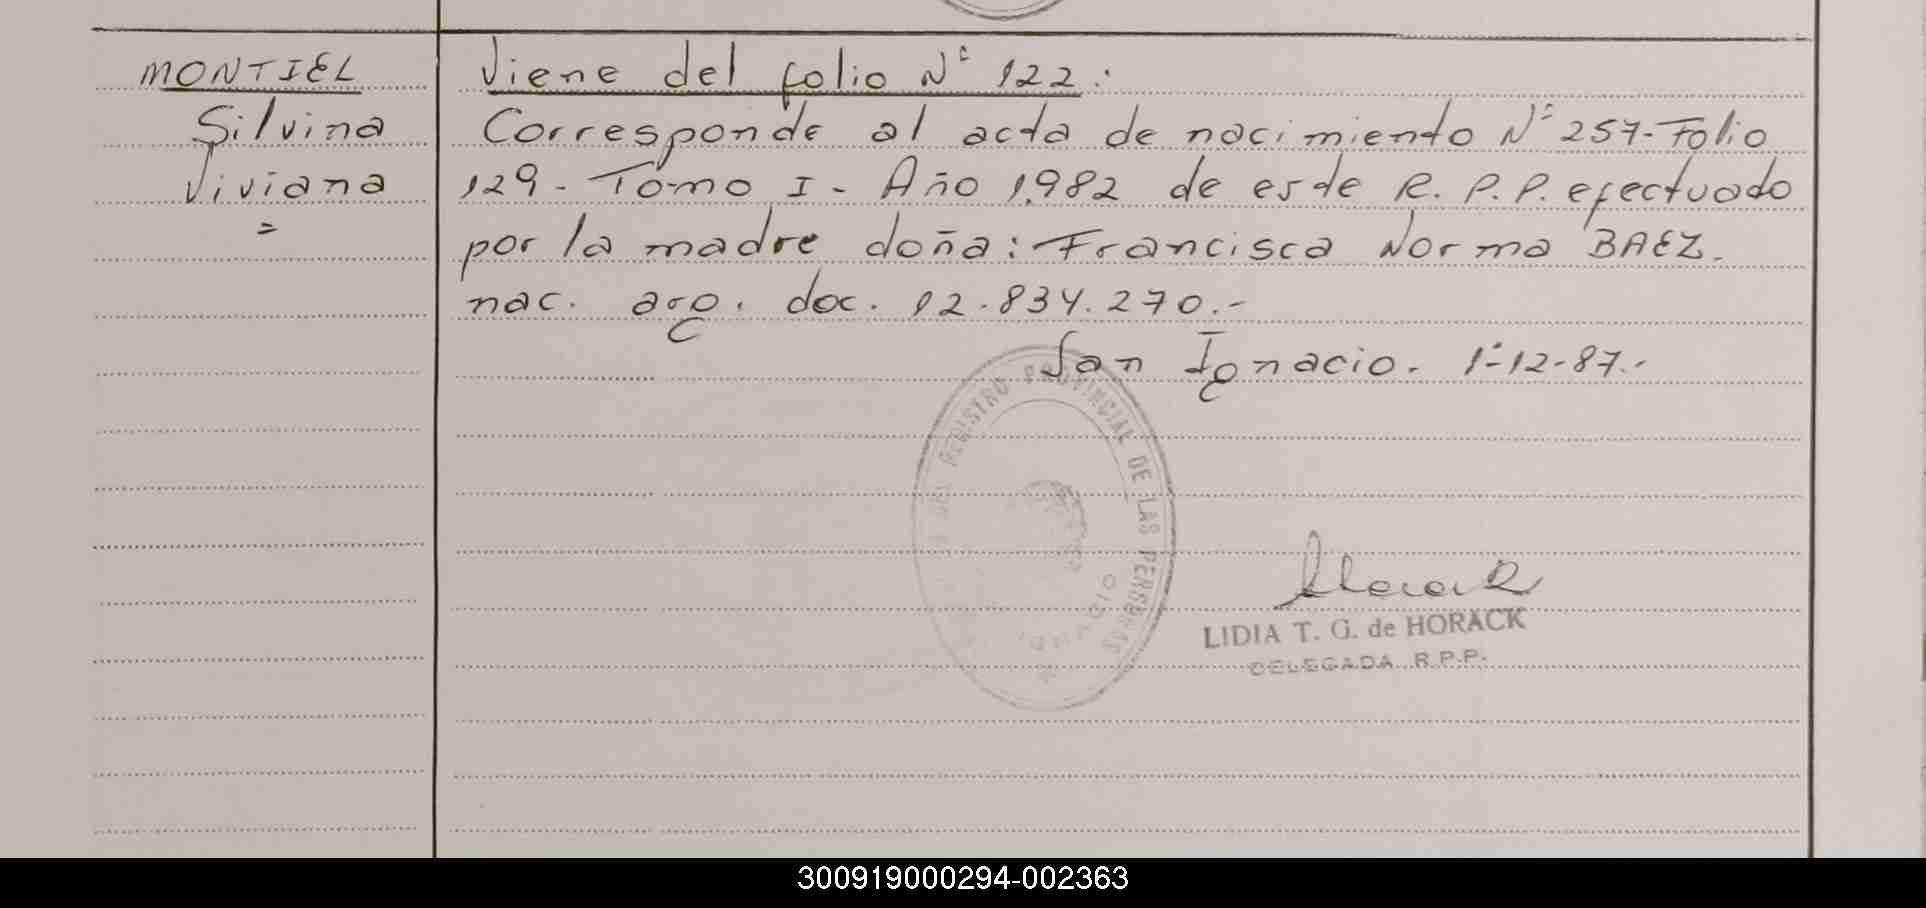 MONTIEL
Silvina
Viviana
=
Viene del folio N° 122:
Corresponde al acta de nacimiento N° 257-Folio
129- Tomo I- Año 1.982 de este R. P. P. efectuado
por la madre doña: Francisca Norma BAEZ.
nac. arg. doc. 12.834.270.-
San Ignacio. 1°-12-87.-
REGISTRO PROVINCIAL DE LAS PERSONAS
Horack
LIDIA T. G. de HORACK
DELEGADA R.P.P.
300919000294-002363